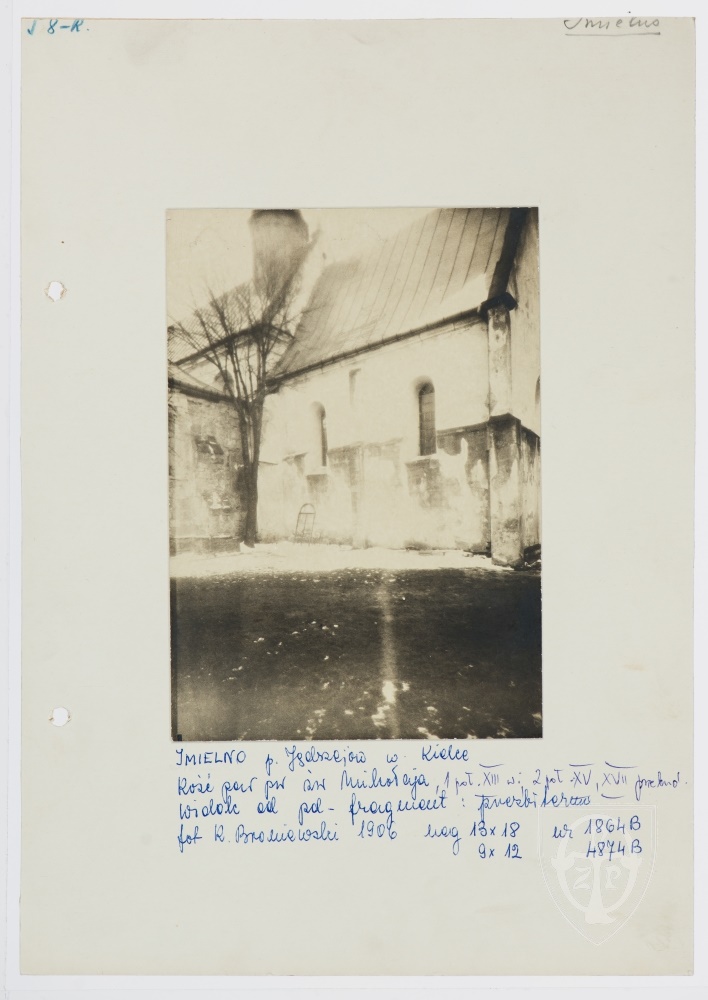 J 8-R.
Imielno
IMIELNO p. Jędrzejów w. Kielce
Kość par pw św Mikołaja, 1 poł. XIII w i 2 poł. XV, XVII przebud.
widok od pd - fragment : prezbiterium
fot K. Broniewski 1906 neg 13x18 nr 1864B
9x12 4874B
ZP